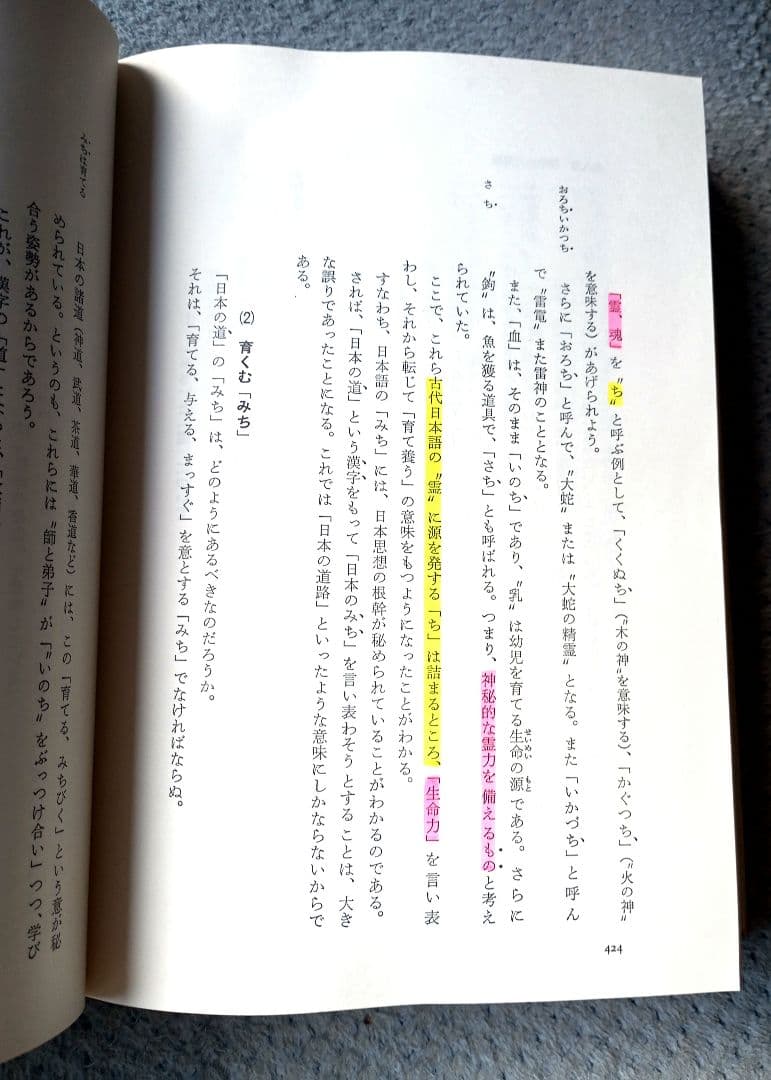 「霊、魂」を〝ち〟と呼ぶ例として、「くくぬち」(〝木の神〟を意味する)、「かぐつち」(〝火の神〟
を意味する)があげられよう。
おろちいかつち
さらに「おろち」と呼んで、〝大蛇〟または〝大蛇の精霊〟となる。また「いかづち」と呼ん
で〝雷電〟また雷神のこととなる。
また、「血」は、そのまま「いのち」であり、〝乳〟は幼児を育てる生命の源である。さらに
せいめい
もと
さち
〝鉤〟は、魚を獲る道具で、「さち」とも呼ばれる。つまり、神秘的な霊力を備えるものと考え
られていた。
ここで、これら古代日本語の〝霊〟に源を発する「ち」は詰まるところ、「生命力」を言い表
わし、それから転じて「育て養う」の意味をもつようになったことがわかる。
すなわち、日本語の「みち」には、日本思想の根幹が秘められていることがわかるのである。
されば、「日本の道」という漢字をもって「日本のみち」を言い表わそうとすることは、大き
な誤りであったことになる。これでは「日本の道路」といったような意味にしかならないからで
ある。
(2) 育くむ「みち」
「日本の道」の「みち」は、どのようにあるべきなのだろうか。
それは、「育てる、与える、まっすぐ」を意とする「みち」でなければならぬ。
424
みちは育てる
日本の諸道(神道、武道、茶道、華道、香道など)には、この「育てる、みちびく」という意が秘
められている。というのも、これらには〝師と弟子〟が「〝いのち〟をぶっつけ合い」つつ、学び
合う姿勢があるからであろう。
これが、漢字の「道」